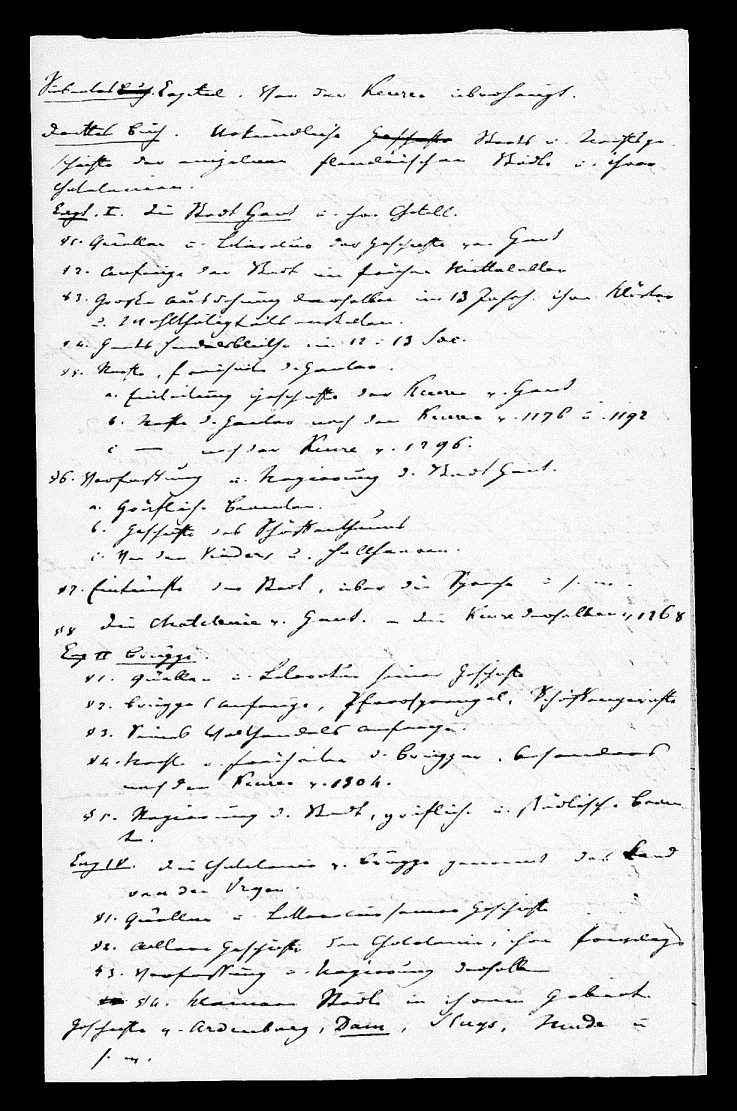 Siebentes Buch. Capitel. Von den Keuren überhaupt.
Drittes Buch. Urkundliche Geschichte Staats u. Rechtsge
schichte der einzelnen flandrischen Städte u. ihrer
Chatelanieen.
Capt. I. Die Stadt Gent u. ihre Chatell.
§1. Quellen u. Literatur der Geschichte von Gent
§2. Anfänge der Stadt im frühern Mittelalter
§3. Große Ausdehnung derselben im 13 Jahrh. ihre Klöster
u. Wohlthätigkeitsanstalten.
§4. Gents Handelsblüthe im 12 u. 13 Sec.
§5. Rechte, Freiheiten d. Genter.
a. Einleitung Geschichte der Keuren v. Gent
b. Rechte d. Genter nach den Keuren v. 1176 u. 1192
c — nach der Keure v. 1296.
§6. Verfassung u. Regierung d. Stadt Gent.
a. Gräfliche Beamten.
b. Geschichte des Schöffenthums
c. Von den Vinders u. Hallherren.
§7. Einkünfte der Stadt, über die Sprache u. s. w.
§8 Die Chatelanie v. Gent. – die Keure derselben v. 1268
Cap II Brügge.
§1. Quellen u. Literatur seiner Geschichte
§2. Brügges Anfänge, Pfarrsprengel, Schöffengerichte
§3. Seines Welthandels Anfänge.
§4. Rechte u. Freiheiten d. Brügger, besonders
nach den Keuren v. 1304.
§5. Regierung d. Stadt, gräfliche u. städtische Beam
te.
Cap IV. Die Chatelanie v. Brügge genannt das Land
van den Vryen.
§1. Quellen u. Litteratur seiner Geschichte
§2. Aeltere Geschichte der Chatelanie, ihre
§3. Verfassung u. Regierung derselben
§4. Kleinere Städte in ihrem Gebiet.
Geschichte v. Ardenburg, Dam, Sluys, Mude u
s. w.